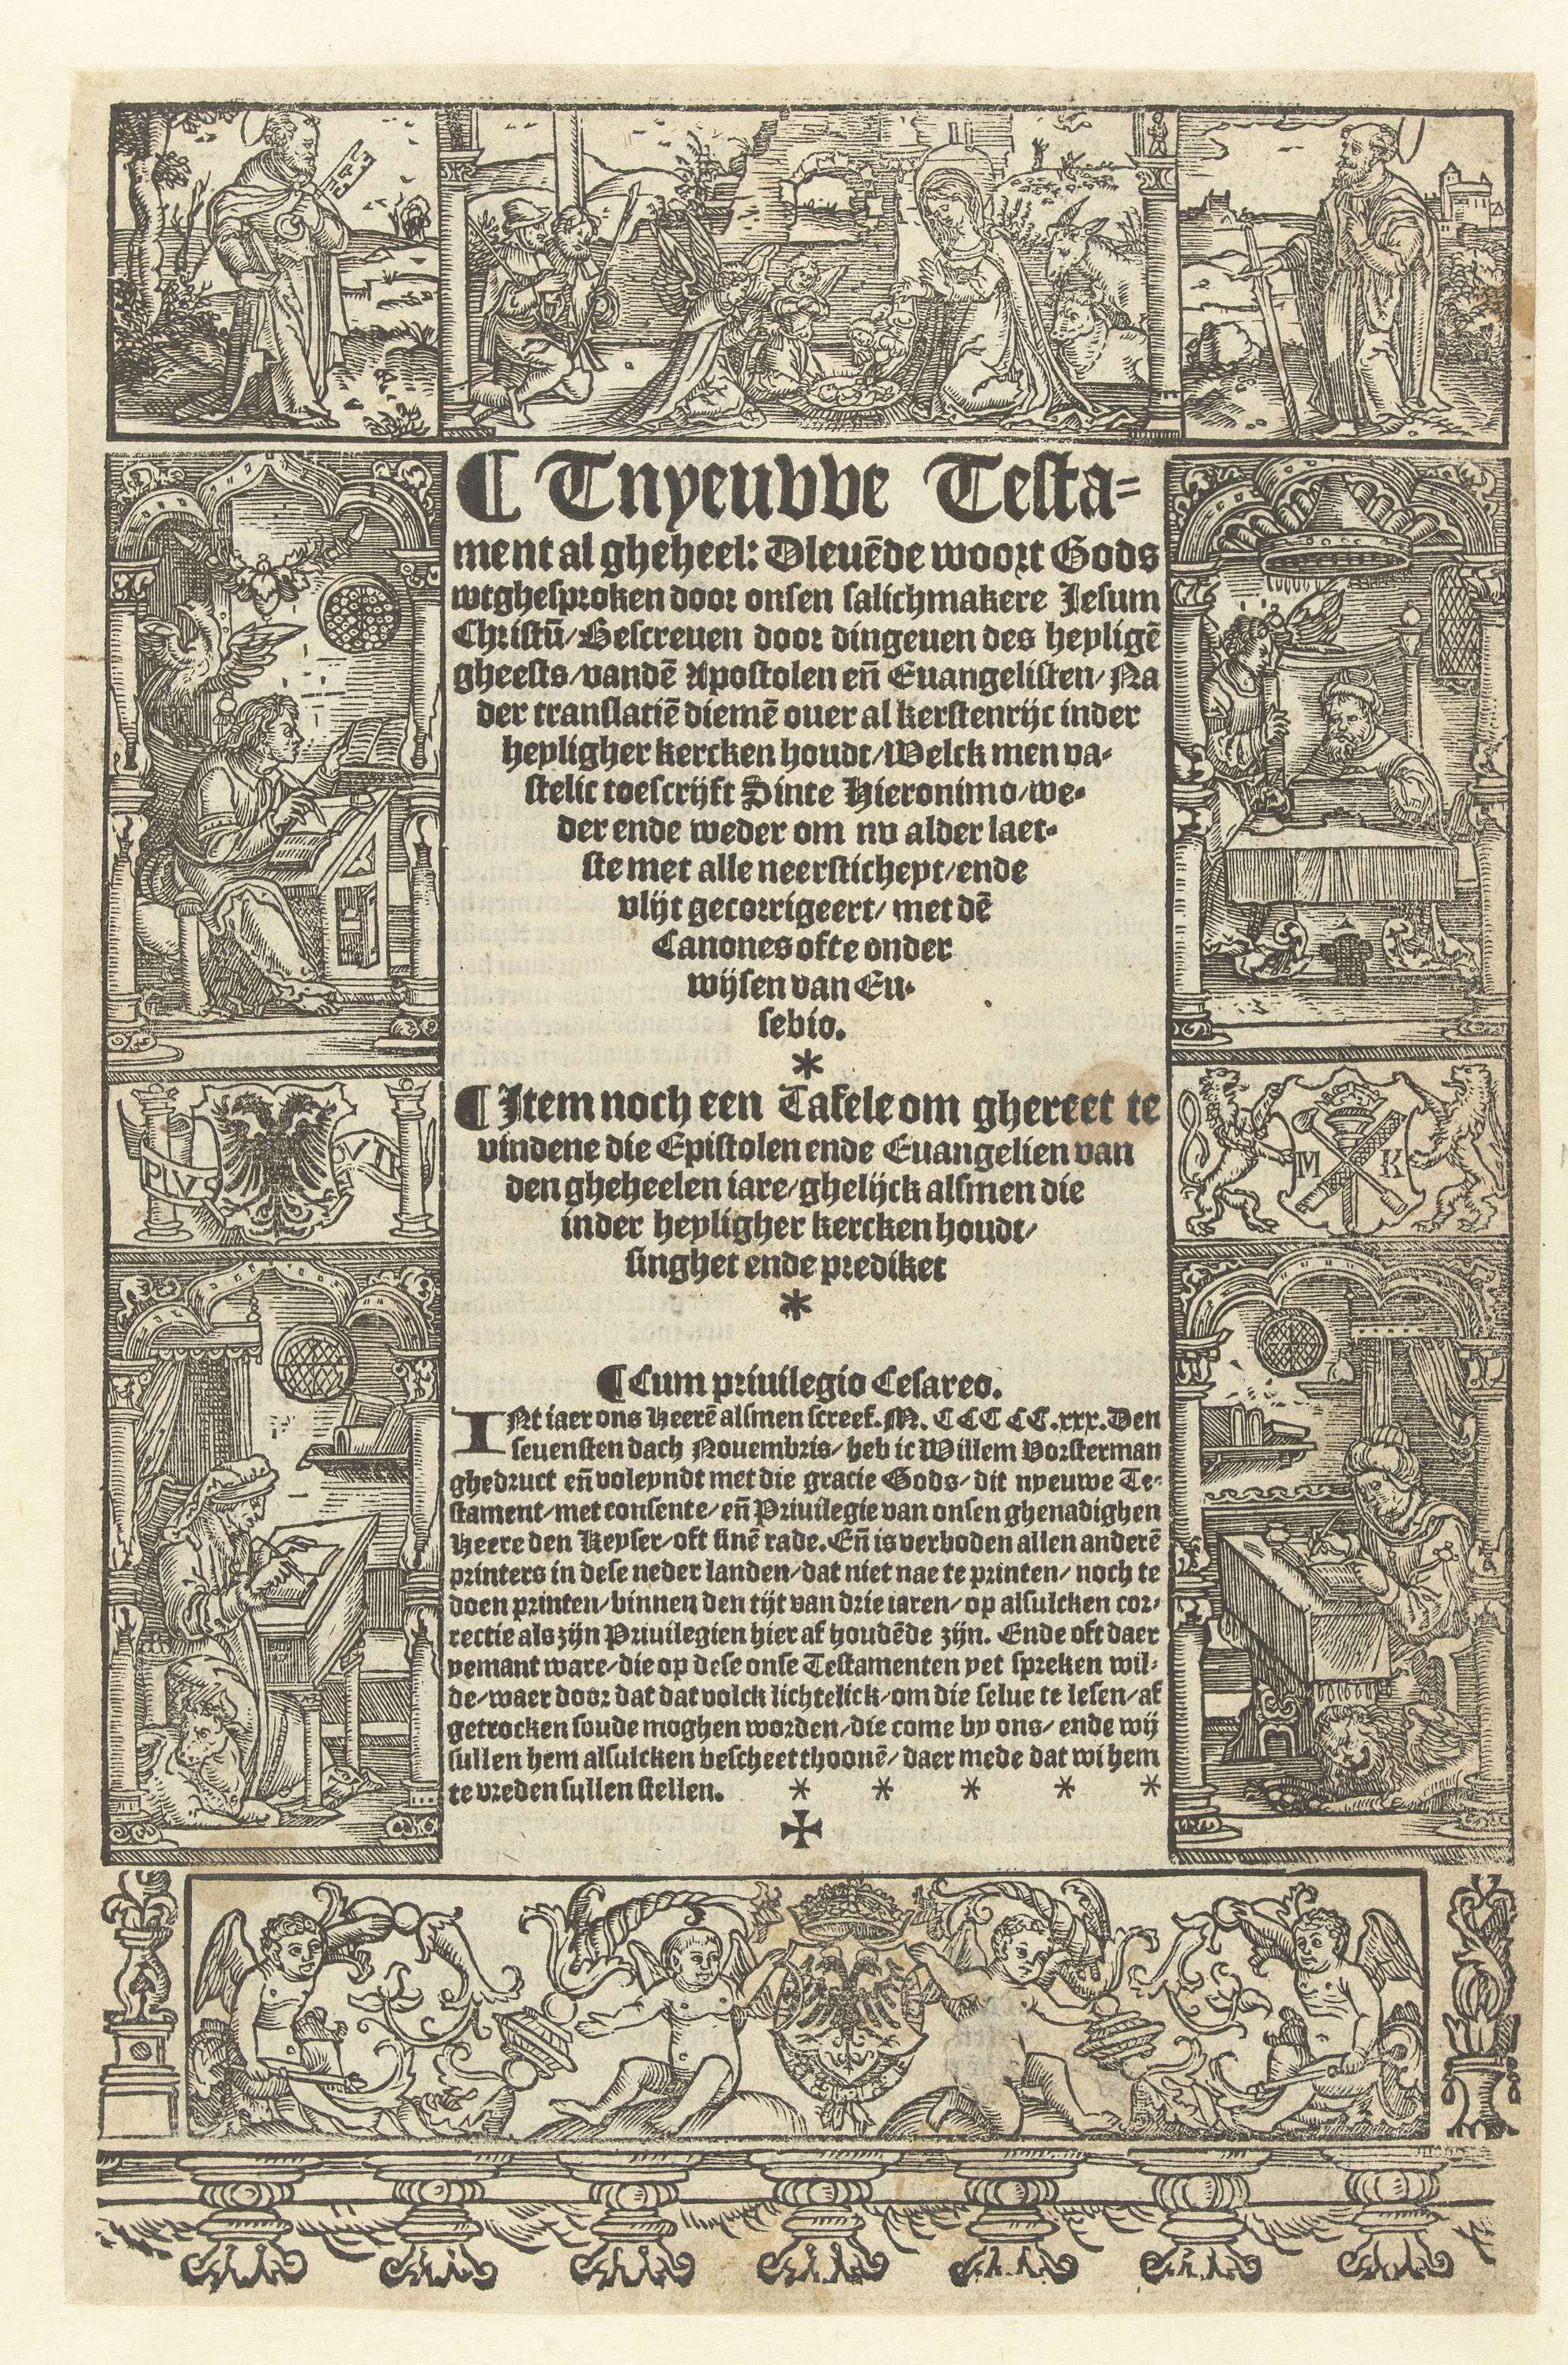 ¶ Tnyeuvve Testa=
ment al gheheel: Dleuēde woort Gods
wtghesproken door onsen salichmakere Jesum
Christū/Bescreuen door dingeuen des heyligē
gheests/vandē Apostolen eñ Euangelisten/Na
der translatiē diemē ouer al kerstenrijc inder
heyligher kercken houdt/Welck men va-
stelic toescrijft Sinte Hieronimo/we-
der ende weder om nv alder laet-
ste met alle neersticheyt/ende
vlijt gecorrigeert/ met dē
Canones ofte onder
wijsen van Eu-
sebio.
*
¶ Item noch een Tafele om ghereet te
vindene die Epistolen ende Euangelien van
den gheheelen iare/ghelijck alsmen die
inder heyligher kercken houdt/
singhet ende prediket
*
PLVS
VLTR
M K
¶ Cum priuilegio Cesareo.
INt iaer ons Heerē alsmen screef. M. CCCCC.xxx. Den
seuensten dach Nouembris/heb ic Willem Vorsterman
ghedruct eñ voleyndt met die gracie Gods/dit nyeuwe Te-
stament/met consente/eñ Priuilegie van onsen ghenadighen
Heere den Keyser/oft sinē rade. Eñ is verboden allen anderē
printers in dese neder landen/dat niet nae te printen/ noch te
doen printen/binnen den tijt van drie iaren/ op alsulcken cor-
rectie als zijn Priuilegien hier af houdēde zijn. Ende oft daer
yemant ware/die op dese onse Testamenten yet spreken wil-
de/waer door dat dat volck lichtelick/om die selue te lesen/af
getrocken soude moghen worden/die come by ons/ ende wij
sullen hem alsulcken bescheet thoonē/daer mede dat wi hem
te vreden sullen stellen. * * * * *
✠